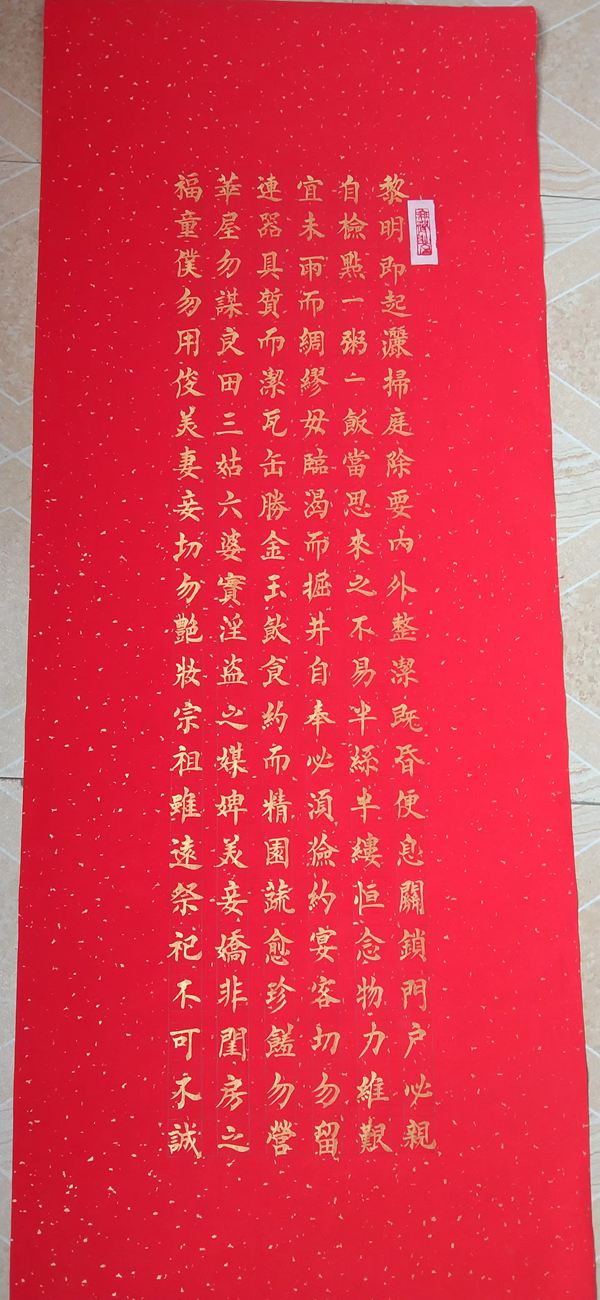 黎明即起灑掃庭除要内外整潔既昏便息關鎖門户必親
自檢點一粥一飯當思來之不易半絲半縷恒念物力維艱
宜未雨而綢繆毋臨渴而掘井自奉必須儉約宴客切勿留
連器具質而潔瓦缶勝金玉飲食約而精園蔬愈珍饈勿營
華屋勿謀良田三姑六婆實淫盗之媒婢美妾嬌非閨房之
福童僕勿用俊美妻妾切勿艷妝宗祖雖遠祭祀不可不誠